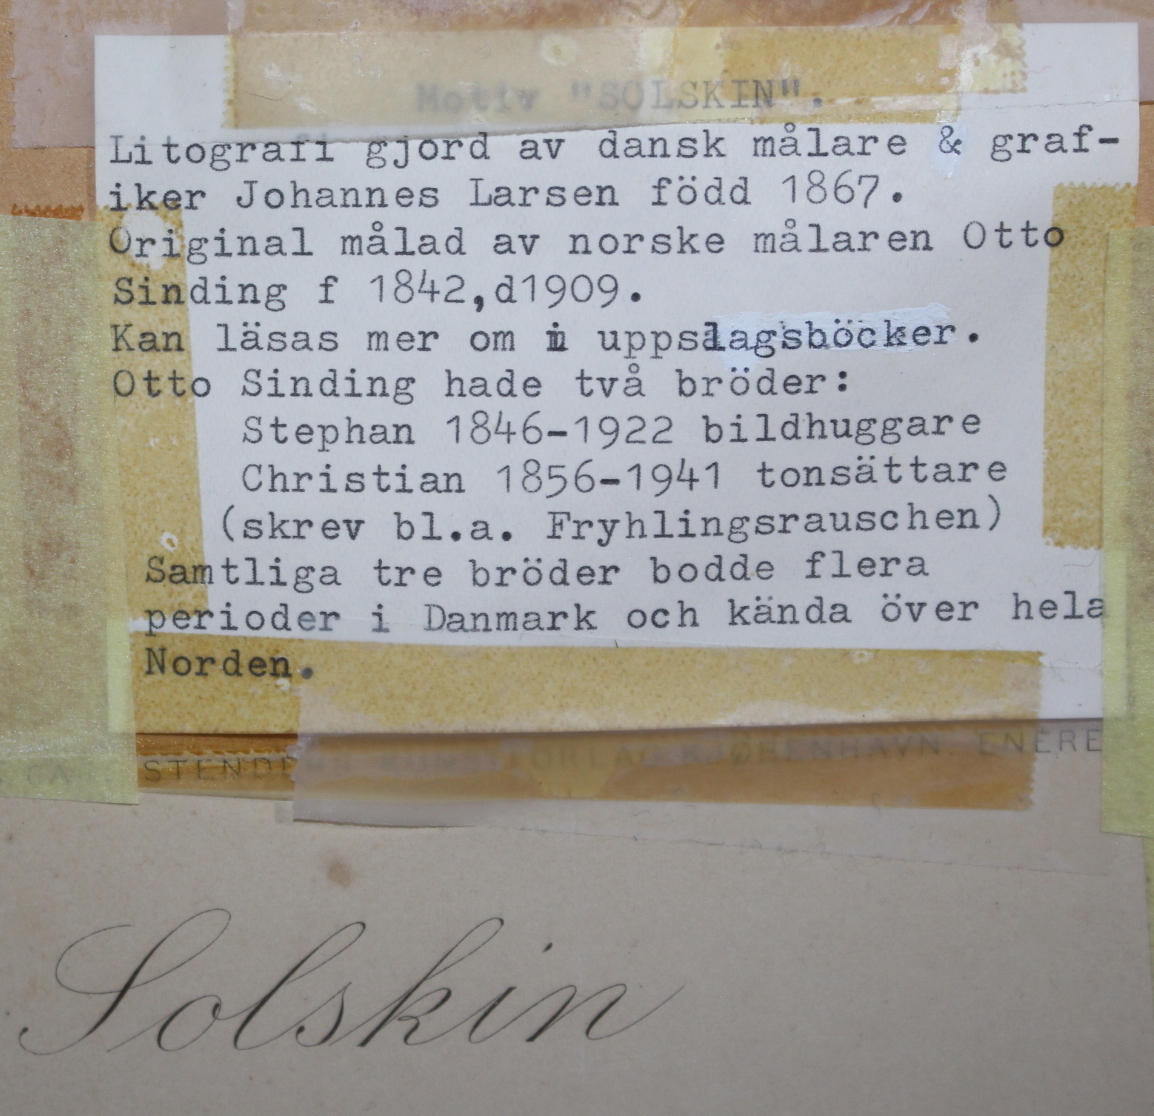 Motiv "SOLSKIN".
Litografi gjord av dansk målare & graf-
iker Johannes Larsen född 1867.
Original målad av norske målaren Otto
Sinding f 1842,d1909.
Kan läsas mer om i uppslagsböcker.
Otto Sinding hade två bröder:
Stephan 1846-1922 bildhuggare
Christian 1856-1941 tonsättare
(skrev bl.a. Fryhlingsrauschen)
Samtliga tre bröder bodde flera
perioder i Danmark och kända över hela
Norden.
KUNSTFORLAG KJØBENHAVN. ENERE
Solskin